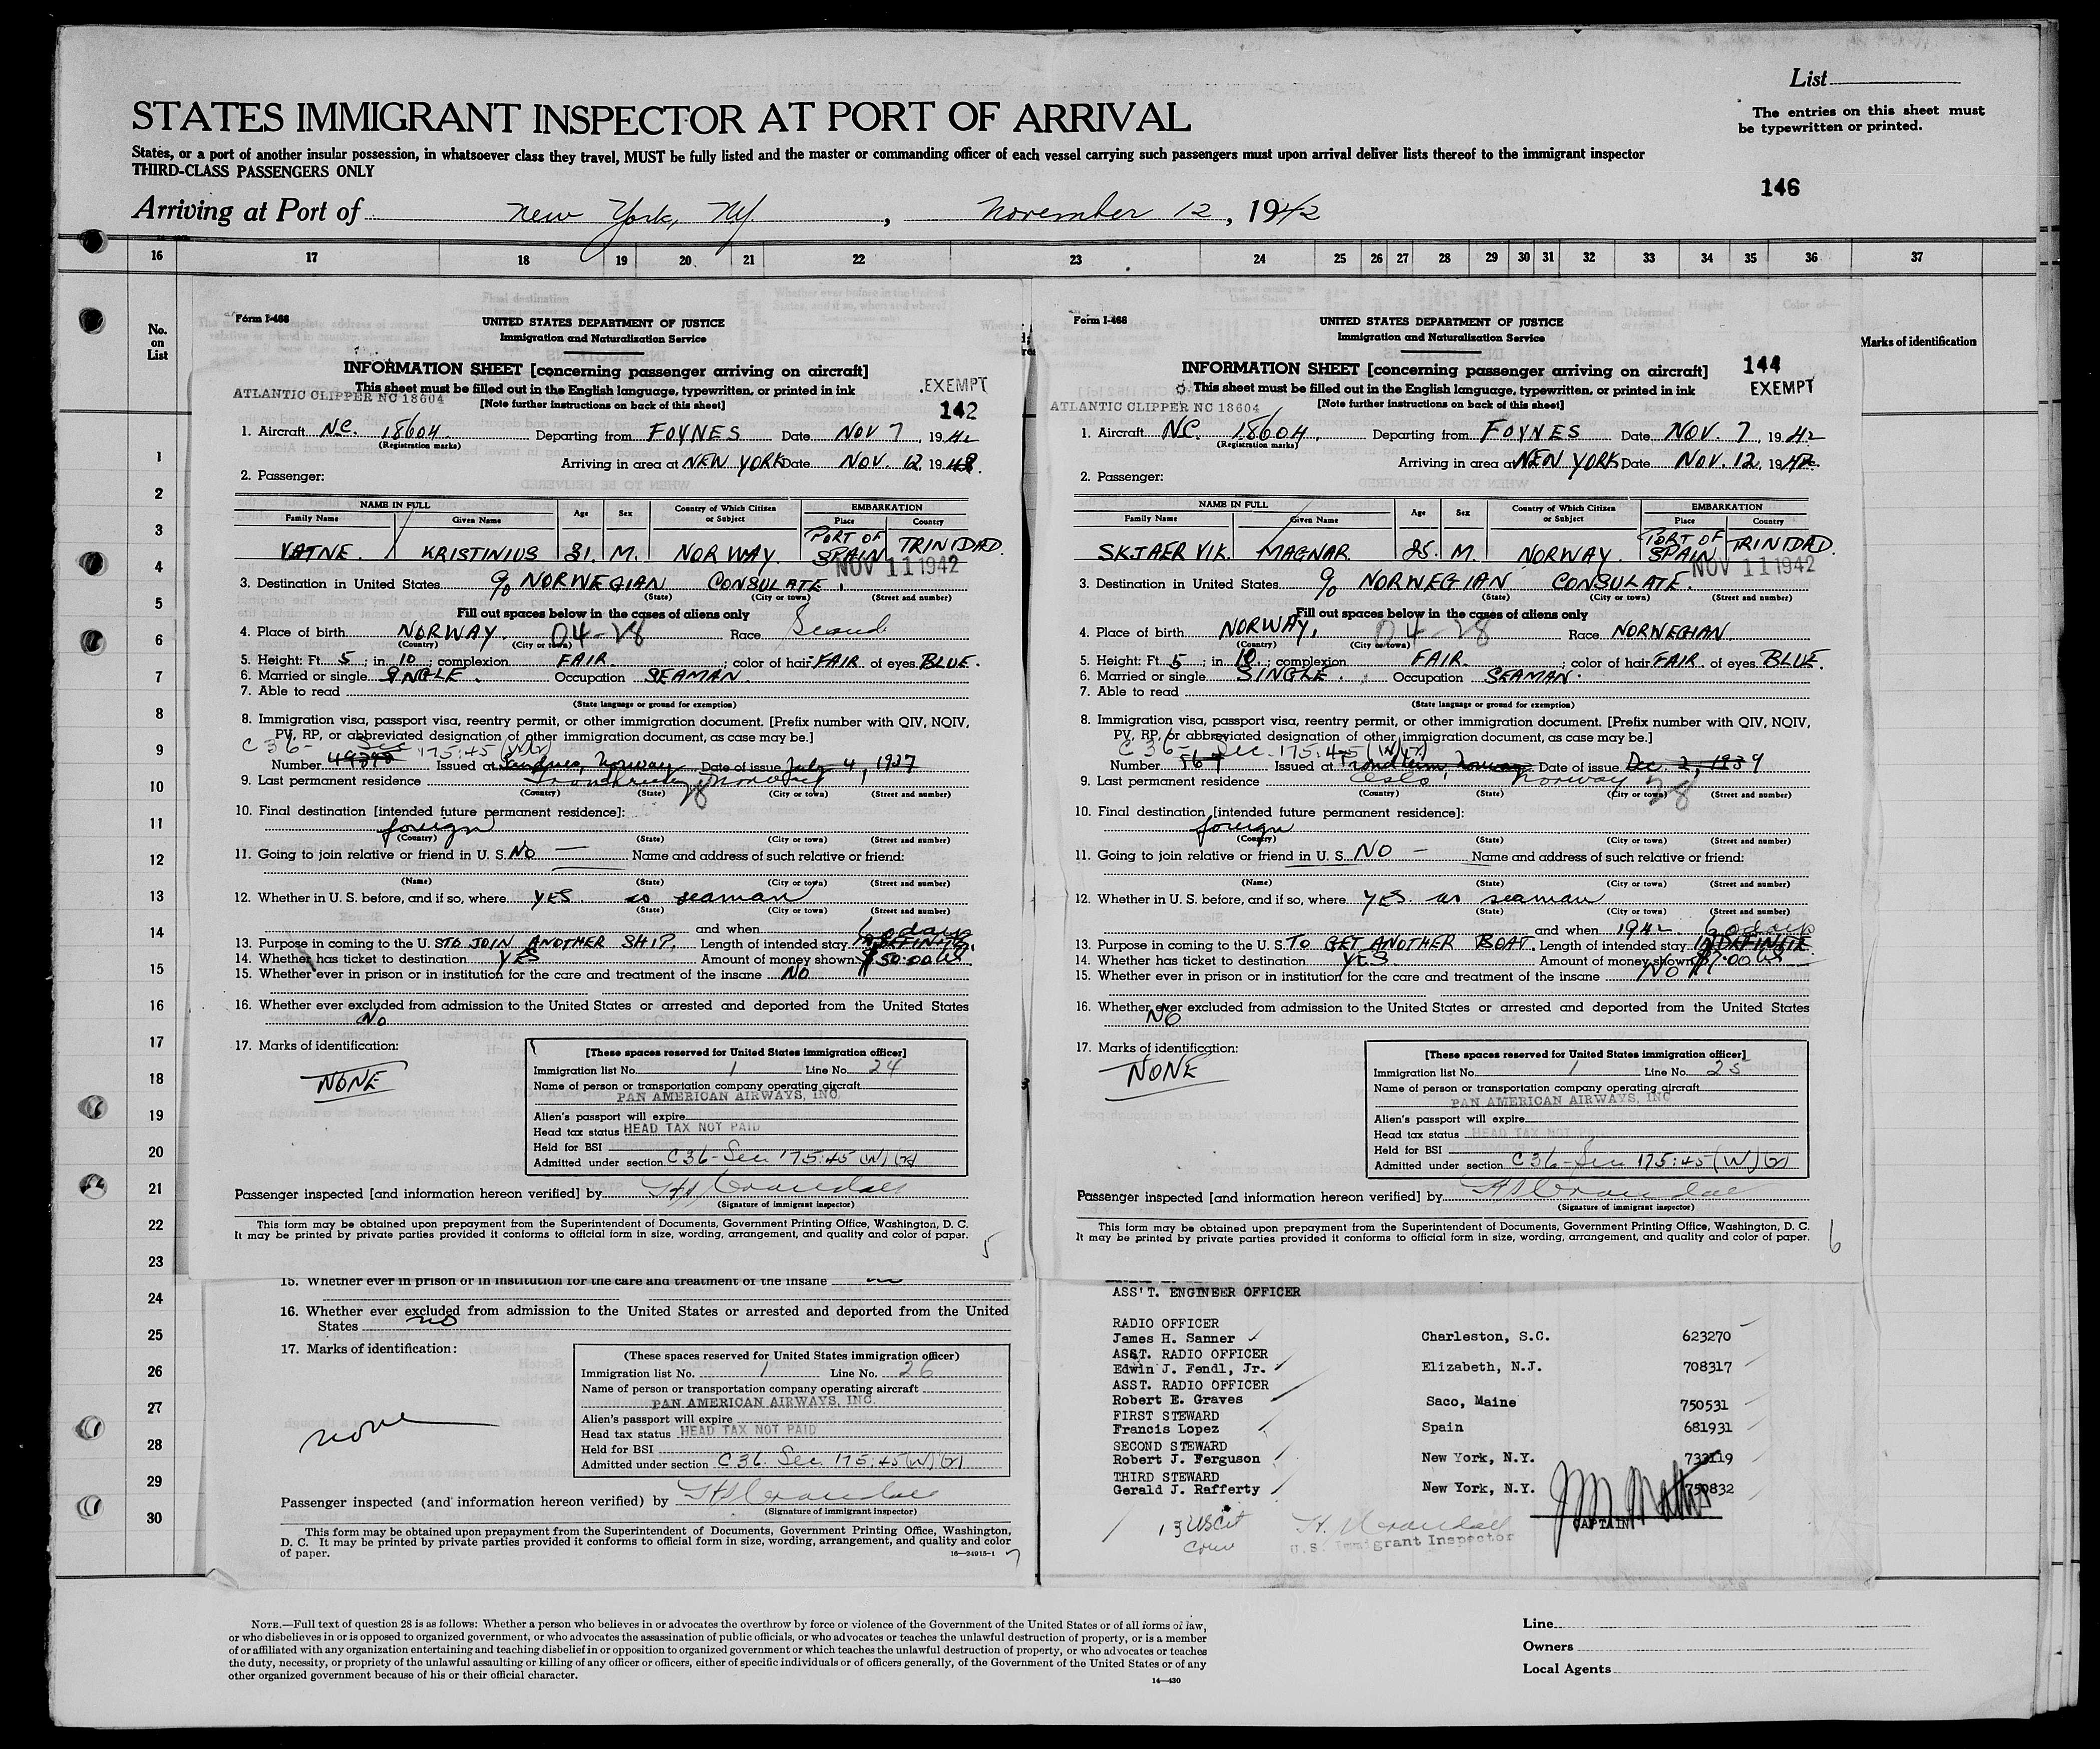 List
The entries on this sheet must
be typewritten or printed.
STATES IMMIGRANT INSPECTOR AT PORT OF ARRIVAL
States, or a port of another insular possession, in whatsoever class they travel, MUST be fully listed and the master or commanding officer of each vessel carrying such passengers must upon arrival deliver lists thereof to the immigrant inspector
THIRD-CLASS PASSENGERS ONLY
146
Arriving at Port of New York, NY, November 12, 1942
16 17 18 19 20 21 22 23 24 25 26 27 28 29 30 31 32 33 34 35 36 37
No. on List
Marks of identification
1
2
3
4
5
6
7
8
9
10
11
12
13
14
15
16
17
18
19
20
21
22
23
24
25
26
27
28
29
30
Form I-466
UNITED STATES DEPARTMENT OF JUSTICE
Immigration and Naturalization Service
INFORMATION SHEET [concerning passenger arriving on aircraft]
This sheet must be filled out in the English language, typewritten, or printed in ink
EXEMPT
ATLANTIC CLIPPER NC 18604
[Note further instructions on back of this sheet]
142
1. Aircraft N.C. 18604 Departing from FOYNES Date NOV 7, 1942
(Registration marks)
Arriving in area at NEW YORK Date NOV. 12, 194
2. Passenger:
NAME IN FULL Age Sex Country of Which Citizen or Subject EMBARKATION
Family Name Given Name Place Country
VATNE. KRISTINIUS 31. M. NORWAY. PORT OF SPAIN TRINIDAD.
NOV 11 1942
3. Destination in United States c/o NORWEGIAN CONSULATE.
(State) (City or town) (Street and number)
Fill out spaces below in the cases of aliens only
4. Place of birth NORWAY. 04-28 Race Scand
(Country) (City or town)
5. Height: Ft. 5; in. 10; complexion FAIR.; color of hair FAIR of eyes BLUE.
6. Married or single SINGLE. Occupation SEAMAN.
7. Able to read
(State language or ground for exemption)
8. Immigration visa, passport visa, reentry permit, or other immigration document. [Prefix number with QIV, NQIV,
PV, RP, or abbreviated designation of other immigration document, as case may be.]
C 36- Sec 175:45 (W)
Number Issued at Norway Date of issue July 4, 1937
9. Last permanent residence Norway 28
(Country) (State) (City or town) (Street and number)
10. Final destination [intended future permanent residence]:
foreign
(Country) (State) (City or town) (Street and number)
11. Going to join relative or friend in U. S. NO — Name and address of such relative or friend:
(Name) (State) (City or town) (Street and number)
12. Whether in U. S. before, and if so, where YES as seaman
(State) (City or town) (Street and number)
and when 60 days
13. Purpose in coming to the U. S. TO JOIN ANOTHER SHIP. Length of intended stay INDEFINITE.
14. Whether has ticket to destination YES Amount of money shown $50.00
15. Whether ever in prison or in institution for the care and treatment of the insane NO
16. Whether ever excluded from admission to the United States or arrested and deported from the United States
No
17. Marks of identification:
NONE
[These spaces reserved for United States immigration officer]
Immigration list No. 1 Line No. 24
Name of person or transportation company operating aircraft
PAN AMERICAN AIRWAYS, INC.
Alien's passport will expire
Head tax status HEAD TAX NOT PAID
Held for BSI
Admitted under section C36-Sec. 175:45 (W)
Passenger inspected [and information hereon verified] by
(Signature of immigrant inspector)
This form may be obtained upon prepayment from the Superintendent of Documents, Government Printing Office, Washington, D. C.
It may be printed by private parties provided it conforms to official form in size, wording, arrangement, and quality and color of paper.
5
Form I-466
UNITED STATES DEPARTMENT OF JUSTICE
Immigration and Naturalization Service
144
INFORMATION SHEET [concerning passenger arriving on aircraft]
This sheet must be filled out in the English language, typewritten, or printed in ink
EXEMPT
ATLANTIC CLIPPER NC 18604
[Note further instructions on back of this sheet]
1. Aircraft NC. 18604, Departing from FOYNES Date NOV. 7, 1942
(Registration marks)
Arriving in area at NEW YORK Date NOV. 12, 1942
2. Passenger:
NAME IN FULL Age Sex Country of Which Citizen or Subject EMBARKATION
Family Name Given Name Place Country
SKJAERVIK. MAGNAR 25. M. NORWAY. PORT OF SPAIN TRINIDAD.
NOV 11 1942
3. Destination in United States c/o NORWEGIAN CONSULATE.
(State) (City or town) (Street and number)
Fill out spaces below in the cases of aliens only
4. Place of birth NORWAY. 04-28 Race NORWEGIAN
(Country) (City or town)
5. Height: Ft. 5; in. 10.; complexion FAIR.; color of hair FAIR. of eyes BLUE.
6. Married or single SINGLE. Occupation SEAMAN.
7. Able to read
(State language or ground for exemption)
8. Immigration visa, passport visa, reentry permit, or other immigration document. [Prefix number with QIV, NQIV,
PV, RP, or abbreviated designation of other immigration document, as case may be.]
C 36- Sec. 175:45 (W)
Number 567 Issued at Trondheim, Norway Date of issue Dec. 2, 1939
9. Last permanent residence Oslo, Norway 28
(Country) (State) (City or town) (Street and number)
10. Final destination [intended future permanent residence]:
foreign
(Country) (State) (City or town) (Street and number)
11. Going to join relative or friend in U. S. NO - Name and address of such relative or friend:
(Name) (State) (City or town) (Street and number)
12. Whether in U. S. before, and if so, where YES. as seaman
(State) (City or town) (Street and number)
and when 1942. 60 days
13. Purpose in coming to the U. S. TO GET ANOTHER BOAT. Length of intended stay INDEFINITE.
14. Whether has ticket to destination YES Amount of money shown
15. Whether ever in prison or in institution for the care and treatment of the insane NO
16. Whether ever excluded from admission to the United States or arrested and deported from the United States
NO
17. Marks of identification:
NONE
[These spaces reserved for United States immigration officer]
Immigration list No. 1 Line No. 25
Name of person or transportation company operating aircraft
PAN AMERICAN AIRWAYS, INC
Alien's passport will expire
Head tax status HEAD TAX NOT PAID
Held for BSI
Admitted under section C36-Sec 175:45 (W)
Passenger inspected [and information hereon verified] by
(Signature of immigrant inspector)
This form may be obtained upon prepayment from the Superintendent of Documents, Government Printing Office, Washington, D. C.
It may be printed by private parties provided it conforms to official form in size, wording, arrangement, and quality and color of paper.
6
15. Whether ever in prison or in institution for the care and treatment of the insane
16. Whether ever excluded from admission to the United States or arrested and deported from the United
States no
17. Marks of identification:
none
(These spaces reserved for United States immigration officer)
Immigration list No. 1 Line No. 26
Name of person or transportation company operating aircraft
PAN AMERICAN AIRWAYS, INC.
Alien's passport will expire
Head tax status HEAD TAX NOT PAID
Held for BSI
Admitted under section C36. Sec. 175:45 (W)
Passenger inspected (and information hereon verified) by
(Signature of immigrant inspector)
This form may be obtained upon prepayment from the Superintendent of Documents, Government Printing Office, Washington,
D. C. It may be printed by private parties provided it conforms to official form in size, wording, arrangement, and quality and color
of paper.
16—24915-1
7
ASS'T. ENGINEER OFFICER
RADIO OFFICER
James H. Sanner Charleston, S.C. 623270
ASST. RADIO OFFICER
Edwin J. Fendl, Jr. Elizabeth, N.J. 708317
ASST. RADIO OFFICER
Robert E. Graves Saco, Maine 750531
FIRST STEWARD
Francis Lopez Spain 681931
SECOND STEWARD
Robert J. Ferguson New York, N.Y. 733119
THIRD STEWARD
Gerald J. Rafferty New York, N.Y. 750832
CAPTAIN
13 US Cit
U.S. Immigrant Inspector
NOTE.—Full text of question 28 is as follows: Whether a person who believes in or advocates the overthrow by force or violence of the Government of the United States or of all forms of law,
or who disbelieves in or is opposed to organized government, or who advocates the assassination of public officials, or who advocates or teaches the unlawful destruction of property, or is a member
of or affiliated with any organization entertaining and teaching disbelief in or opposition to organized government or which teaches the unlawful destruction of property, or who advocates or teaches
the duty, necessity, or propriety of the unlawful assaulting or killing of any officer or officers, either of specific individuals or of officers generally, of the Government of the United States or of any
other organized government because of his or their official character.
14—430
Line
Owners
Local Agents